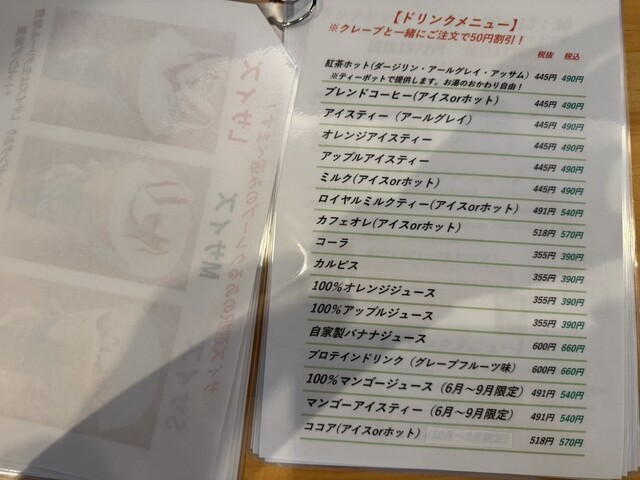 【ドリンクメニュー】
※クレープと一緒にご注文で50円割引！
税抜 税込
紅茶ホット(ダージリン・アールグレイ・アッサム) 445円 490円
※ティーポットで提供します。お湯のおかわり自由！
ブレンドコーヒー(アイスorホット) 445円 490円
アイスティー（アールグレイ） 445円 490円
オレンジアイスティー 445円 490円
アップルアイスティー 445円 490円
ミルク(アイスorホット) 445円 490円
ロイヤルミルクティー(アイスorホット) 491円 540円
カフェオレ(アイスorホット) 518円 570円
コーラ 355円 390円
カルピス 355円 390円
100％オレンジジュース 355円 390円
100％アップルジュース 355円 390円
自家製バナナジュース 600円 660円
プロテインドリンク（グレープフルーツ味） 600円 660円
100％マンゴージュース（6月～9月限定） 491円 540円
マンゴーアイスティー（6月～9月限定） 491円 540円
ココア(アイスorホット) 518円 570円
Lサイズ
Mサイズ
Sサイズ